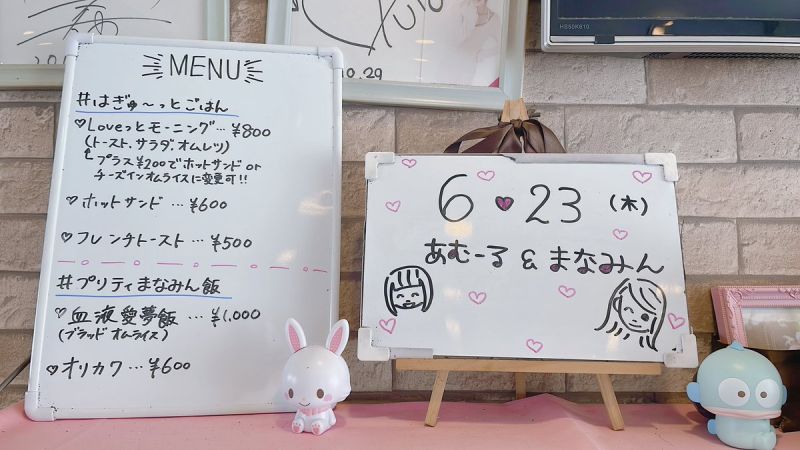 MENU
#はぎゅ〜っとごはん
♡Loveっとモーニング…¥800
(トースト、サラダ、オムレツ)
プラス¥200でホットサンド or
チーズインオムライスに変更可!!
♡ホットサンド…¥600
♡フレンチトースト…¥500
#プリティまなみん飯
♡血液愛夢飯…¥1,000
(ブラッドオムライス)
♡オリカワ…¥600
6♥23(木)
あむーる&まなみん
0.29
HS50K610